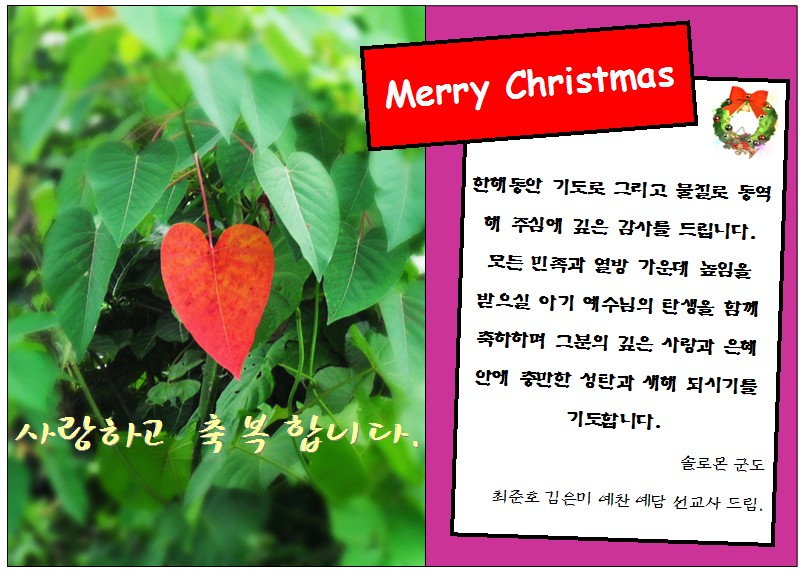 Merry Christmas
한해동안 기도로 그리고 물질로 동역
해 주심에 깊은 감사를 드립니다.
모든 민족과 열방 가운데 높임을
받으실 아기 예수님의 탄생을 함께
축하하며 그분의 깊은 사랑과 은혜
안에 충만한 성탄과 새해 되시기를
기도합니다.
솔로몬 군도
최준호 김은미 예찬 예담 선교사 드림.
사랑하고 축복합니다.